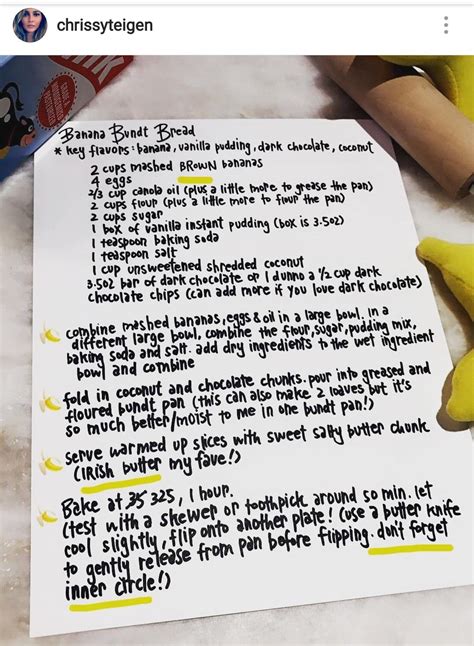 chrissyteigen
Banana Bundt Bread
* key flavors: banana, vanilla pudding, dark chocolate, coconut
2 cups mashed BROWN bananas
4 eggs
2/3 cup canola oil (plus a little more to grease the pan)
2 cups flour (plus a little more to flour the pan)
2 cups sugar
1 box of vanilla instant pudding (box is 3.5oz)
1 teaspoon baking soda
1 teaspoon salt
1 cup unsweetened shredded coconut
3.5oz bar of dark chocolate or I dunno a 1/2 cup dark
chocolate chips (can add more if you love dark chocolate)
combine mashed bananas, eggs & oil in a large bowl. In a
different large bowl, combine the flour, sugar, pudding mix,
baking soda and salt. add dry ingredients to the wet ingredient
bowl and combine
fold in coconut and chocolate chunks. pour into greased and
floured bundt pan (this can also make 2 loaves but it's
so much better/moist to me in one bundt pan!)
serve warmed up slices with sweet salty butter chunk
(IRish butter my fave!)
Bake at 325, 1 hour.
(test with a skewer or toothpick around 50 min. let
cool slightly, flip onto another plate! (use a butter knife
to gently release from pan before flipping. don't forget
inner circle!)